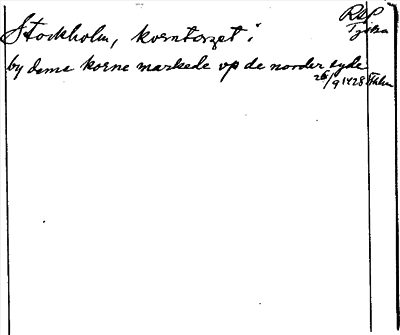 Stockholm, korntorget i
RAP
Tyska
by deme korne markede vp de norder syde
26/9 1428